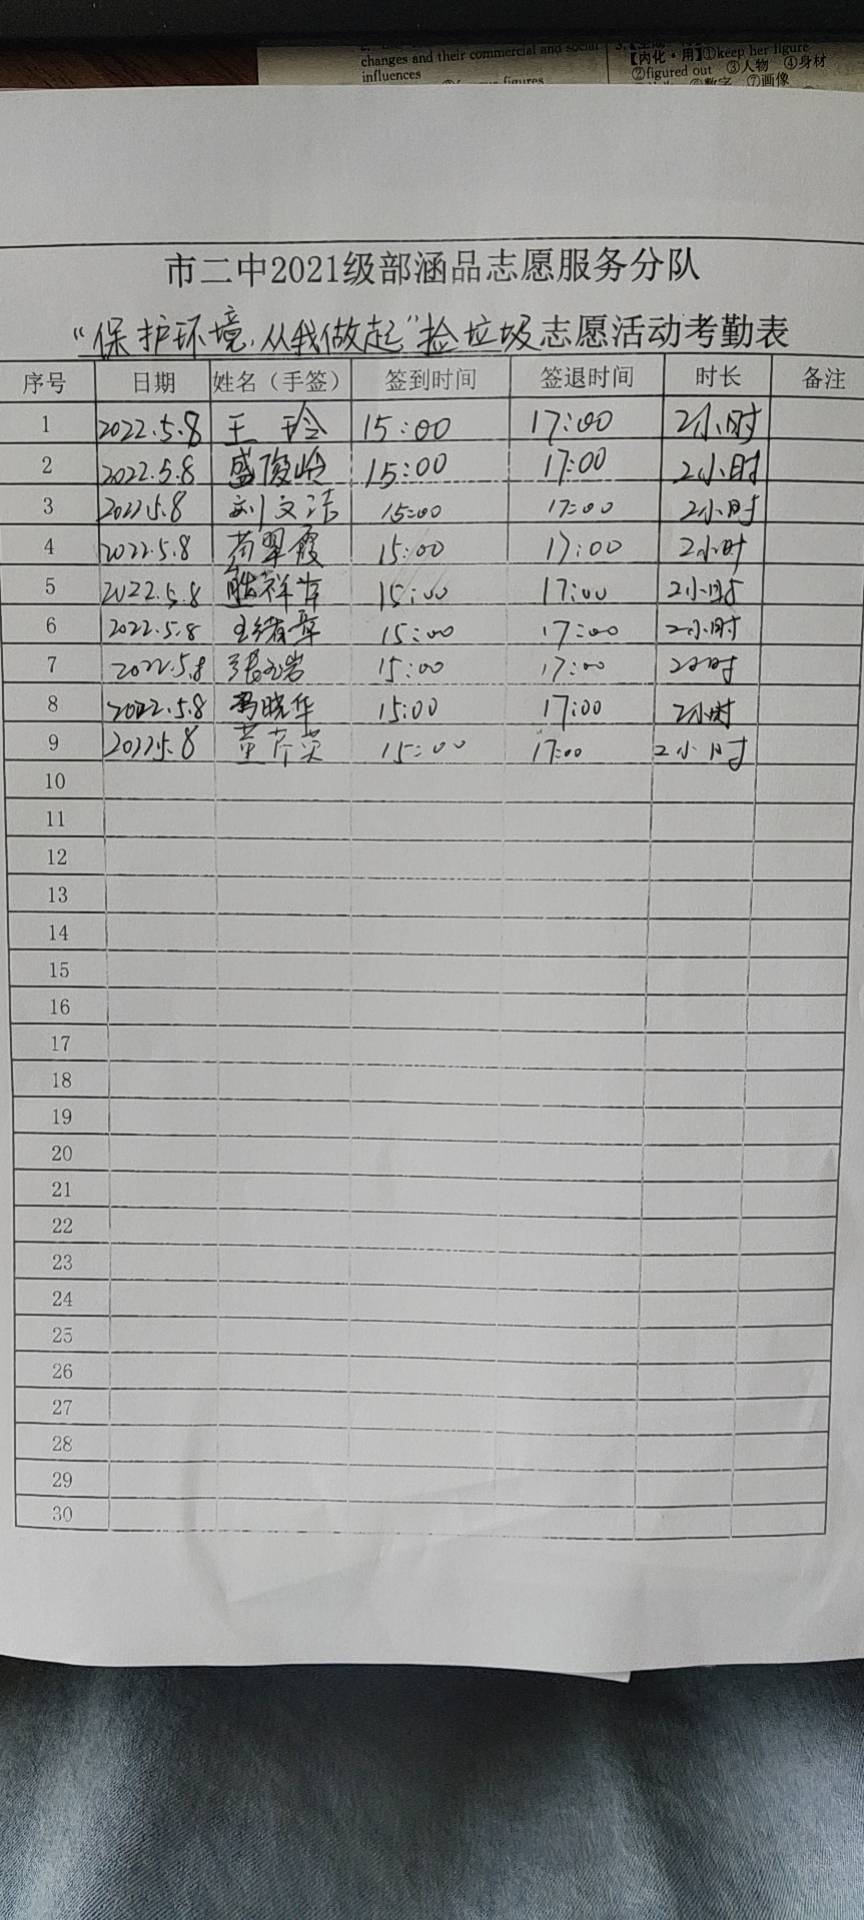 changes and their commercial and social
influences
【内化·用】①keep her figure
②figured out ③人物 ④身材
⑦画像
figures
市二中2021级部涵品志愿服务分队
“保护环境,从我做起”捡垃圾志愿活动考勤表
序号 日期 姓名（手签） 签到时间 签退时间 时长 备注
1 2022.5.8 王玲 15:00 17:00 2小时
2 2022.5.8 盛俊岭 15:00 17:00 2小时
3 2022.5.8 刘文洁 15:00 17:00 2小时
4 2022.5.8 翠霞 15:00 17:00 2小时
5 2022.5.8 祥 15:00 17:00 2小时
6 2022.5.8 王绪 15:00 17:00 2小时
7 2022.5.8 张岩 15:00 17:00 2小时
8 2022.5.8 冯晓华 15:00 17:00 2小时
9 2022.5.8 黄芹英 15:00 17:00 2小时
10
11
12
13
14
15
16
17
18
19
20
21
22
23
24
25
26
27
28
29
30